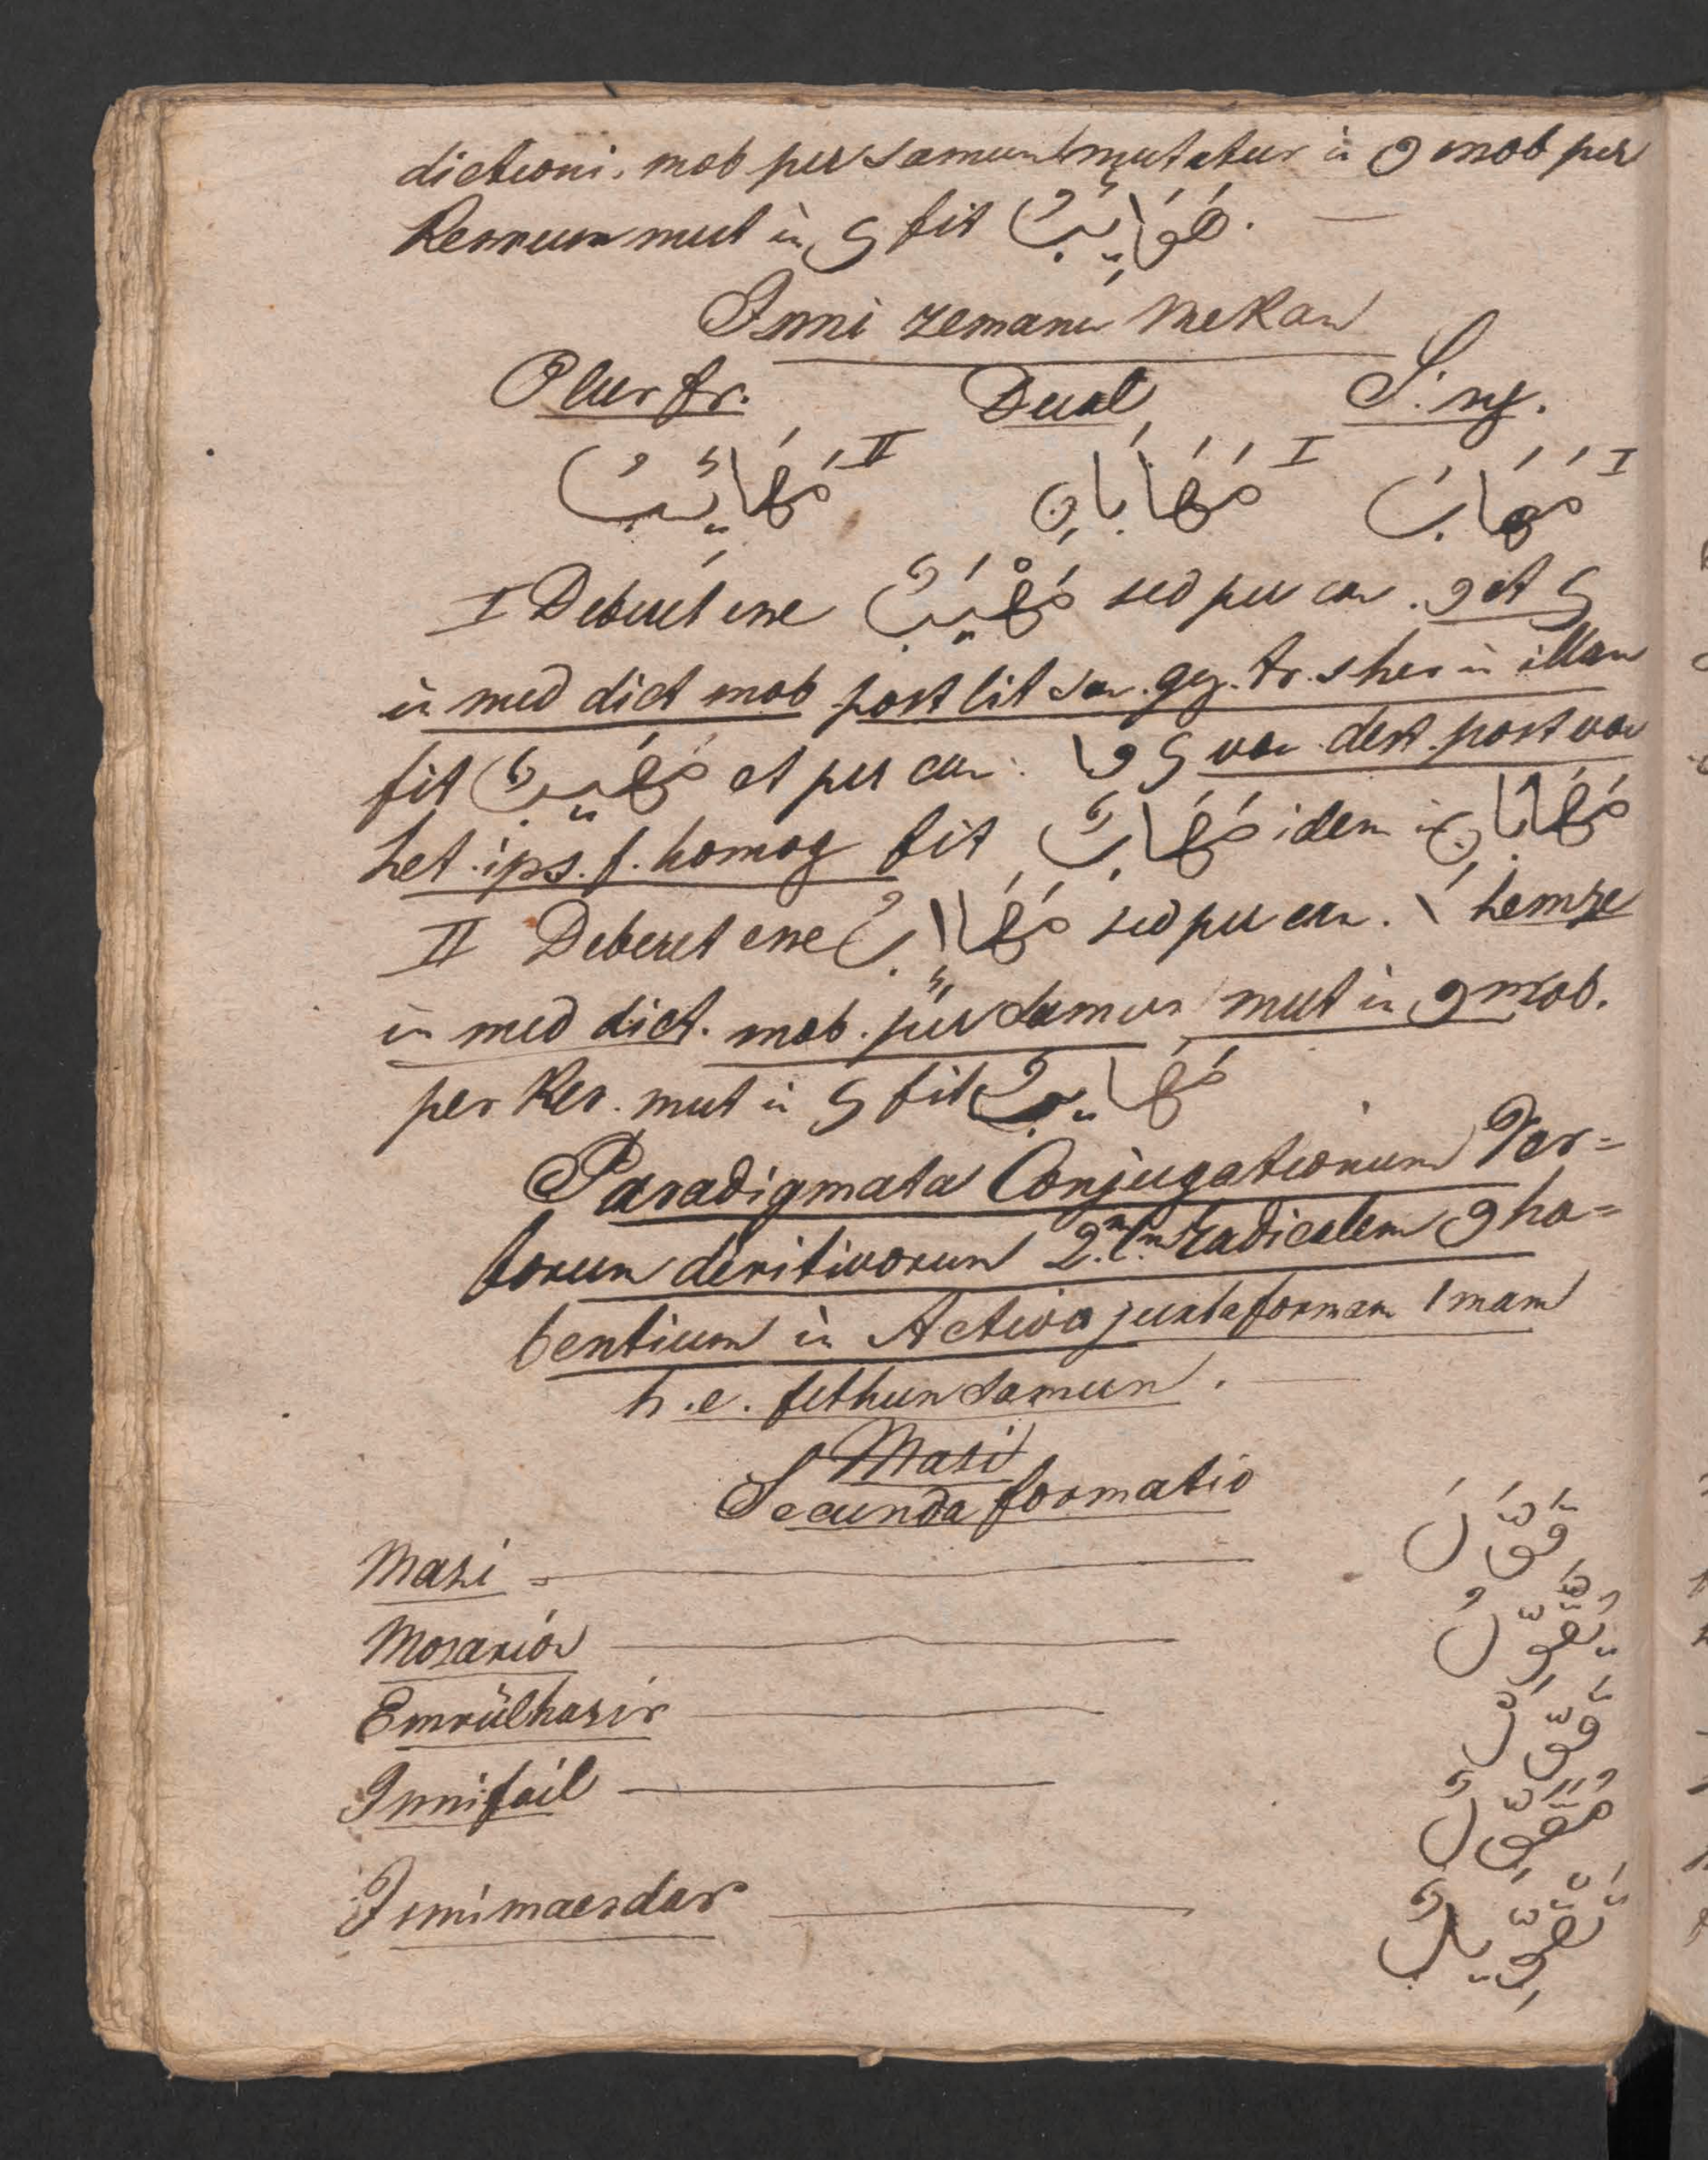 dictioni. mob per samum mutatur in و mob per
Kesrum mut in ى fit هُوَايِبُ.
Ismi zemanu mekan
Plur fr. Dual Sing.
مَهَائِبُ II مَهَابَانِ I مَهَابٌ I
I Deberet esse مَهْيَبٌ sed per can. و et ى
in med dict mob post lit san. gez. tr. s her in illam
fit مَهَيْبٌ et per can. و ى vau dest. post vau
het. ips. f. homog fit مَهَابٌ idem in مَهَابَانِ
II Deberet esse sed per can. ا hemze
in med dict. mob. per samum mut in و mob.
per Kes. mut in ى fit مَهَايِبُ
Paradigmata Conjugationum Ver=
borum deritivorum 2.am lm radicalem و ha=
bentium in Activo juxta formam 1mam
h. e. fethun samun.
Mazi
Secunda formatio
Mazi قَوَّلَ
Mozarió يُقَوِّلُ
Emrülhazir قَوِّلْ
Ismi fail مُقَوِّلٌ
Ismi maesdar تَقْوِيلٌ